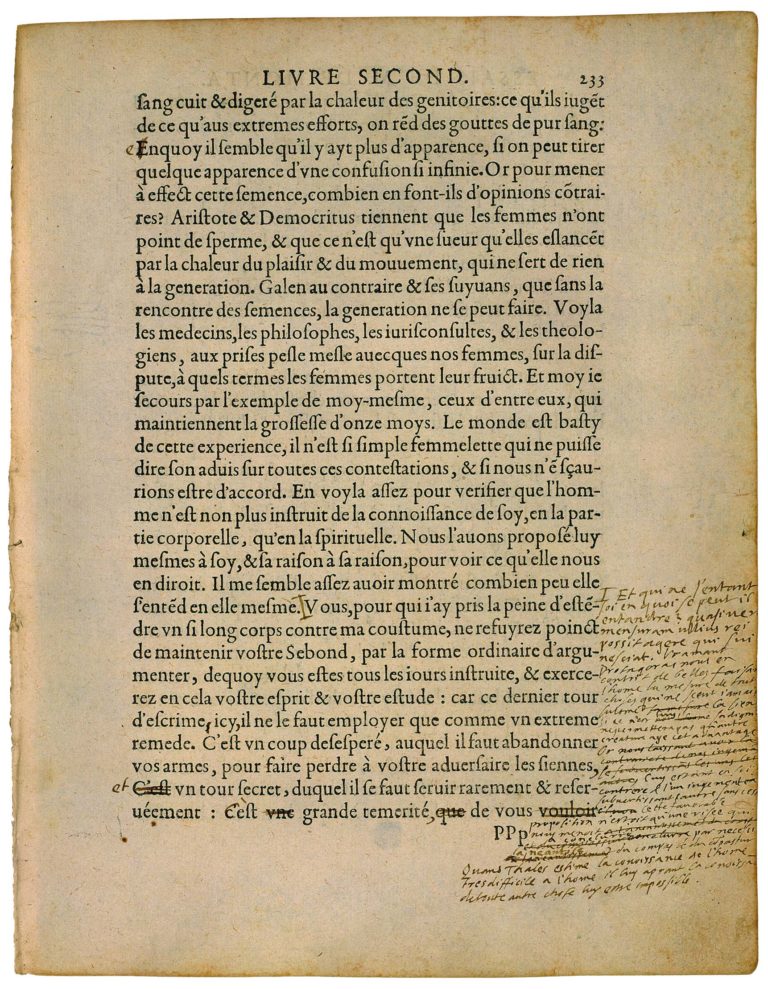 LIVRE SECOND. 233
ſang cuit & digeré par la chaleur des genitoires: ce qu'ils iugẽt
de ce qu'aus extremes efforts, on rẽd des gouttes de pur ſang:
Enquoy il ſemble qu'il y ayt plus d'apparence, ſi on peut tirer
quelque apparence d'vne confuſion ſi infinie. Or pour mener
à effect cette ſemence, combien en font-ils d'opinions cõtrai-
res? Ariſtote & Democritus tiennent que les femmes n'ont
point de ſperme, & que ce n'eſt qu'vne ſueur qu'elles eſlancẽt
par la chaleur du plaiſir & du mouuement, qui ne ſert de rien
à la generation. Galen au contraire & ſes ſuyuans, que ſans la
rencontre des ſemences, la generation ne ſe peut faire. Voyla
les medecins, les philoſophes, les iuriſconſultes, & les theolo-
giens, aux priſes peſle meſle auecques nos femmes, ſur la diſ-
pute, à quels termes les femmes portent leur fruict. Et moy ie
ſecours par l'exemple de moy-meſme, ceux d'entre eux, qui
maintiennent la groſſeſſe d'onze moys. Le monde eſt baſty
de cette experience, il n'eſt ſi ſimple femmelette qui ne puiſſe
dire ſon aduis ſur toutes ces conteſtations, & ſi nous n'ẽ ſçau-
rions eſtre d'accord. En voyla aſſez pour verifier que l'hom-
me n'eſt non plus inſtruit de la connoiſſance de ſoy, en la par-
tie corporelle, qu'en la ſpirituelle. Nous l'auons propoſé luy
meſmes à ſoy, & ſa raiſon à ſa raiſon, pour voir ce qu'elle nous
en diroit. Il me ſemble aſſez auoir montré combien peu elle
s'entẽd en elle meſme. Vous, pour qui i'ay pris la peine d'eſtẽ-
dre vn ſi long corps contre ma couſtume, ne refuyrez poinct
de maintenir voſtre Sebond, par la forme ordinaire d'argu-
menter, dequoy vous eſtes tous les iours inſtruite, & exerce-
rez en cela voſtre eſprit & voſtre eſtude : car ce dernier tour
d'eſcrime icy, il ne le faut employer que comme vn extreme
remede. C'eſt vn coup deſeſperé, auquel il faut abandonner
vos armes, pour faire perdre à voſtre aduerſaire les ſiennes,
et C'eſt vn tour ſecret, duquel il ſe faut ſeruir rarement & reſer-
uéement : C'eſt vne grande temerité, que de vous vouloir
PPp
Et qui ne s'entant
soi en quoi se peut il
entandre? quasi vero
mensuram ullius rei
possit agere qui sui
nesciat. Vramant
Protagoras nous en
contoit de belles faisant
l'home la mesure de tout
choses qui ne sceut iamais
creature aye cet avantage
Or
proposition n'estoit qu'une risee qui
nous menoit
par necessi
du compas & du compassur
Quand Thales estime la conoissance de l'home
tresdifficile a l'home il luy aprant la conoissa
de toute autre chose luy estre impossible.